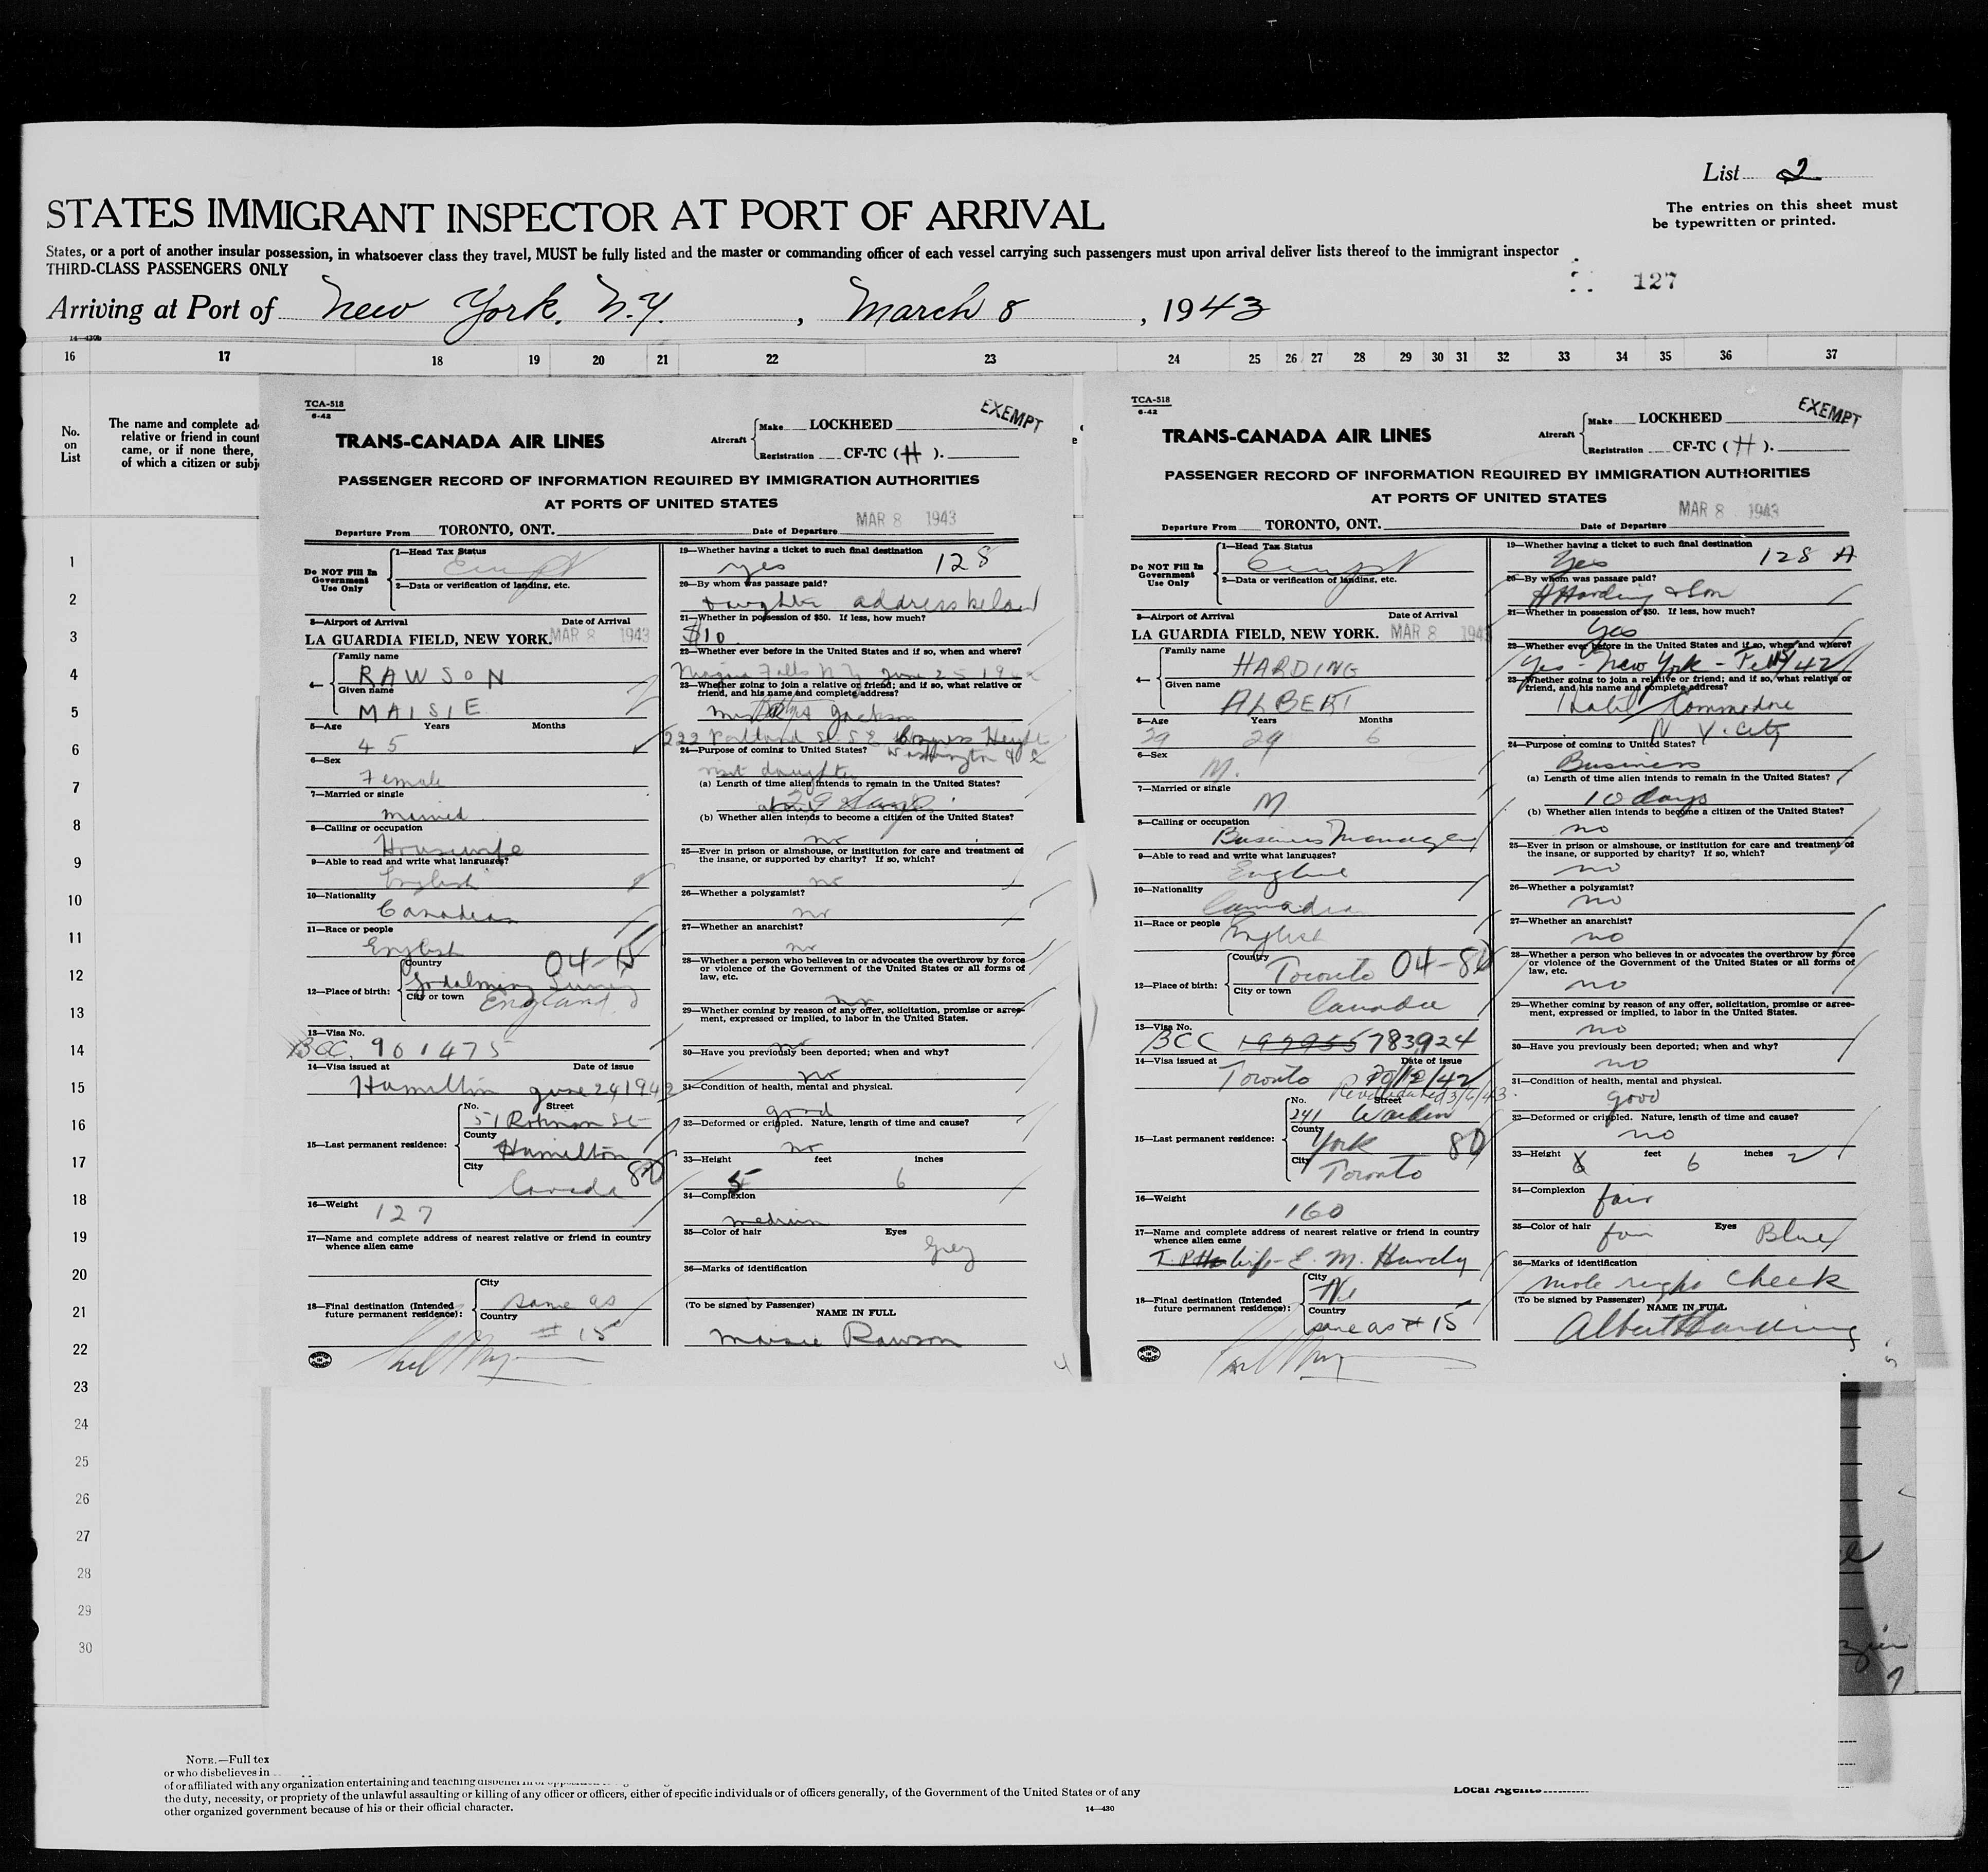 List 2
STATES IMMIGRANT INSPECTOR AT PORT OF ARRIVAL
The entries on this sheet must
be typewritten or printed.
States, or a port of another insular possession, in whatsoever class they travel, MUST be fully listed and the master or commanding officer of each vessel carrying such passengers must upon arrival deliver lists thereof to the immigrant inspector
THIRD-CLASS PASSENGERS ONLY
127
Arriving at Port of New York, N.Y., March 8, 1943
14—430b
16 17 18 19 20 21 22 23 24 25 26 27 28 29 30 31 32 33 34 35 36 37
No.
on
List
The name and complete ad
relative or friend in count
came, or if none there,
of which a citizen or subj
1
2
3
4
5
6
7
8
9
10
11
12
13
14
15
16
17
18
19
20
21
22
23
24
25
26
27
28
29
30
TCA-518
6-42
EXEMPT
TRANS-CANADA AIR LINES
Aircraft Make LOCKHEED
Registration CF-TC (H).
PASSENGER RECORD OF INFORMATION REQUIRED BY IMMIGRATION AUTHORITIES
AT PORTS OF UNITED STATES
Departure From TORONTO, ONT. Date of Departure MAR 8 1943
Do NOT Fill In
Government
Use Only
1—Head Tax Status
2—Data or verification of landing, etc.
3—Airport of Arrival Date of Arrival
LA GUARDIA FIELD, NEW YORK. MAR 8 1943
4— Family name
RAWSON
Given name
MAISIE
5—Age Years Months
45
6—Sex
Female
7—Married or single
married
8—Calling or occupation
Housewife
9—Able to read and write what languages?
English
10—Nationality
Canadian
11—Race or people
English
04-15
12—Place of birth: Country
Godalming Surrey
City or town
England
13—Visa No.
BCC. 901475
14—Visa issued at Date of issue
Hamilton June 24, 1942
15—Last permanent residence: No. Street
51 Robinson St
County
Hamilton
City
Canada 80
16—Weight
127
17—Name and complete address of nearest relative or friend in country
whence alien came
18—Final destination (Intended
future permanent residence):
City
same as
Country
# 15
19—Whether having a ticket to such final destination
yes 128
20—By whom was passage paid?
Daughter address below
21—Whether in possession of $50. If less, how much?
$10
22—Whether ever before in the United States and if so, when and where?
Niagara Falls N.Y. June 25
23—Whether going to join a relative or friend; and if so, what relative or
friend, and his name and complete address?
Jackson
222 Portland St. S.E. Congress Heights
Washington D C
24—Purpose of coming to United States?
visit daughter
(a) Length of time alien intends to remain in the United States?
29 days
(b) Whether alien intends to become a citizen of the United States?
no
25—Ever in prison or almshouse, or institution for care and treatment of
the insane, or supported by charity? If so, which?
no
26—Whether a polygamist?
no
27—Whether an anarchist?
no
28—Whether a person who believes in or advocates the overthrow by force
or violence of the Government of the United States or all forms of
law, etc.
no
29—Whether coming by reason of any offer, solicitation, promise or agree-
ment, expressed or implied, to labor in the United States.
no
30—Have you previously been deported; when and why?
no
31—Condition of health, mental and physical.
good
32—Deformed or crippled. Nature, length of time and cause?
no
33—Height feet inches
5 6
34—Complexion
medium
35—Color of hair Eyes
Grey
36—Marks of identification
(To be signed by Passenger) NAME IN FULL
Maisie Rawson
4
TCA-518
6-42
EXEMPT
TRANS-CANADA AIR LINES
Aircraft Make LOCKHEED
Registration CF-TC (H).
PASSENGER RECORD OF INFORMATION REQUIRED BY IMMIGRATION AUTHORITIES
AT PORTS OF UNITED STATES
Departure From TORONTO, ONT. Date of Departure MAR 8 1943
Do NOT Fill In
Government
Use Only
1—Head Tax Status
2—Data or verification of landing, etc.
3—Airport of Arrival Date of Arrival
LA GUARDIA FIELD, NEW YORK. MAR 8 1943
4— Family name
HARDING
Given name
ALBERT
5—Age Years Months
29 29 6
6—Sex
M.
7—Married or single
M
8—Calling or occupation
Business Manager
9—Able to read and write what languages?
English
10—Nationality
Canadian
11—Race or people
English
12—Place of birth: Country
Toronto 04-80
City or town
Canada
13—Visa No.
BCC 199955 783924
14—Visa issued at Date of issue
Toronto
Revalidated 3/6/43.
15—Last permanent residence: No. Street
241 Warden
County
York 80
City
Toronto
16—Weight
160
17—Name and complete address of nearest relative or friend in country
whence alien came
wife- E. M. Hardy
18—Final destination (Intended
future permanent residence):
City
Country
same as # 15
19—Whether having a ticket to such final destination
Yes 128 A
20—By whom was passage paid?
A Harding & Son
21—Whether in possession of $50. If less, how much?
Yes
22—Whether ever before in the United States and if so, when and where?
Yes - New York - Feb /42
23—Whether going to join a relative or friend; and if so, what relative or
friend, and his name and complete address?
Hotel Commodore
N Y. City
24—Purpose of coming to United States?
Business
(a) Length of time alien intends to remain in the United States?
10 days
(b) Whether alien intends to become a citizen of the United States?
no
25—Ever in prison or almshouse, or institution for care and treatment of
the insane, or supported by charity? If so, which?
no
26—Whether a polygamist?
no
27—Whether an anarchist?
no
28—Whether a person who believes in or advocates the overthrow by force
or violence of the Government of the United States or all forms of
law, etc.
no
29—Whether coming by reason of any offer, solicitation, promise or agree-
ment, expressed or implied, to labor in the United States.
no
30—Have you previously been deported; when and why?
no
31—Condition of health, mental and physical.
Good
32—Deformed or crippled. Nature, length of time and cause?
no
33—Height feet inches
6 6 2
34—Complexion
fair
35—Color of hair Eyes
fair Blue
36—Marks of identification
mole right cheek
(To be signed by Passenger) NAME IN FULL
Albert Harding
5
NOTE.—Full tex
or who disbelieves in
of or affiliated with any organization entertaining and teaching
the duty, necessity, or propriety of the unlawful assaulting or killing of any officer or officers, either of specific individuals or of officers generally, of the Government of the United States or of any
other organized government because of his or their official character.
14—430
Local Agents